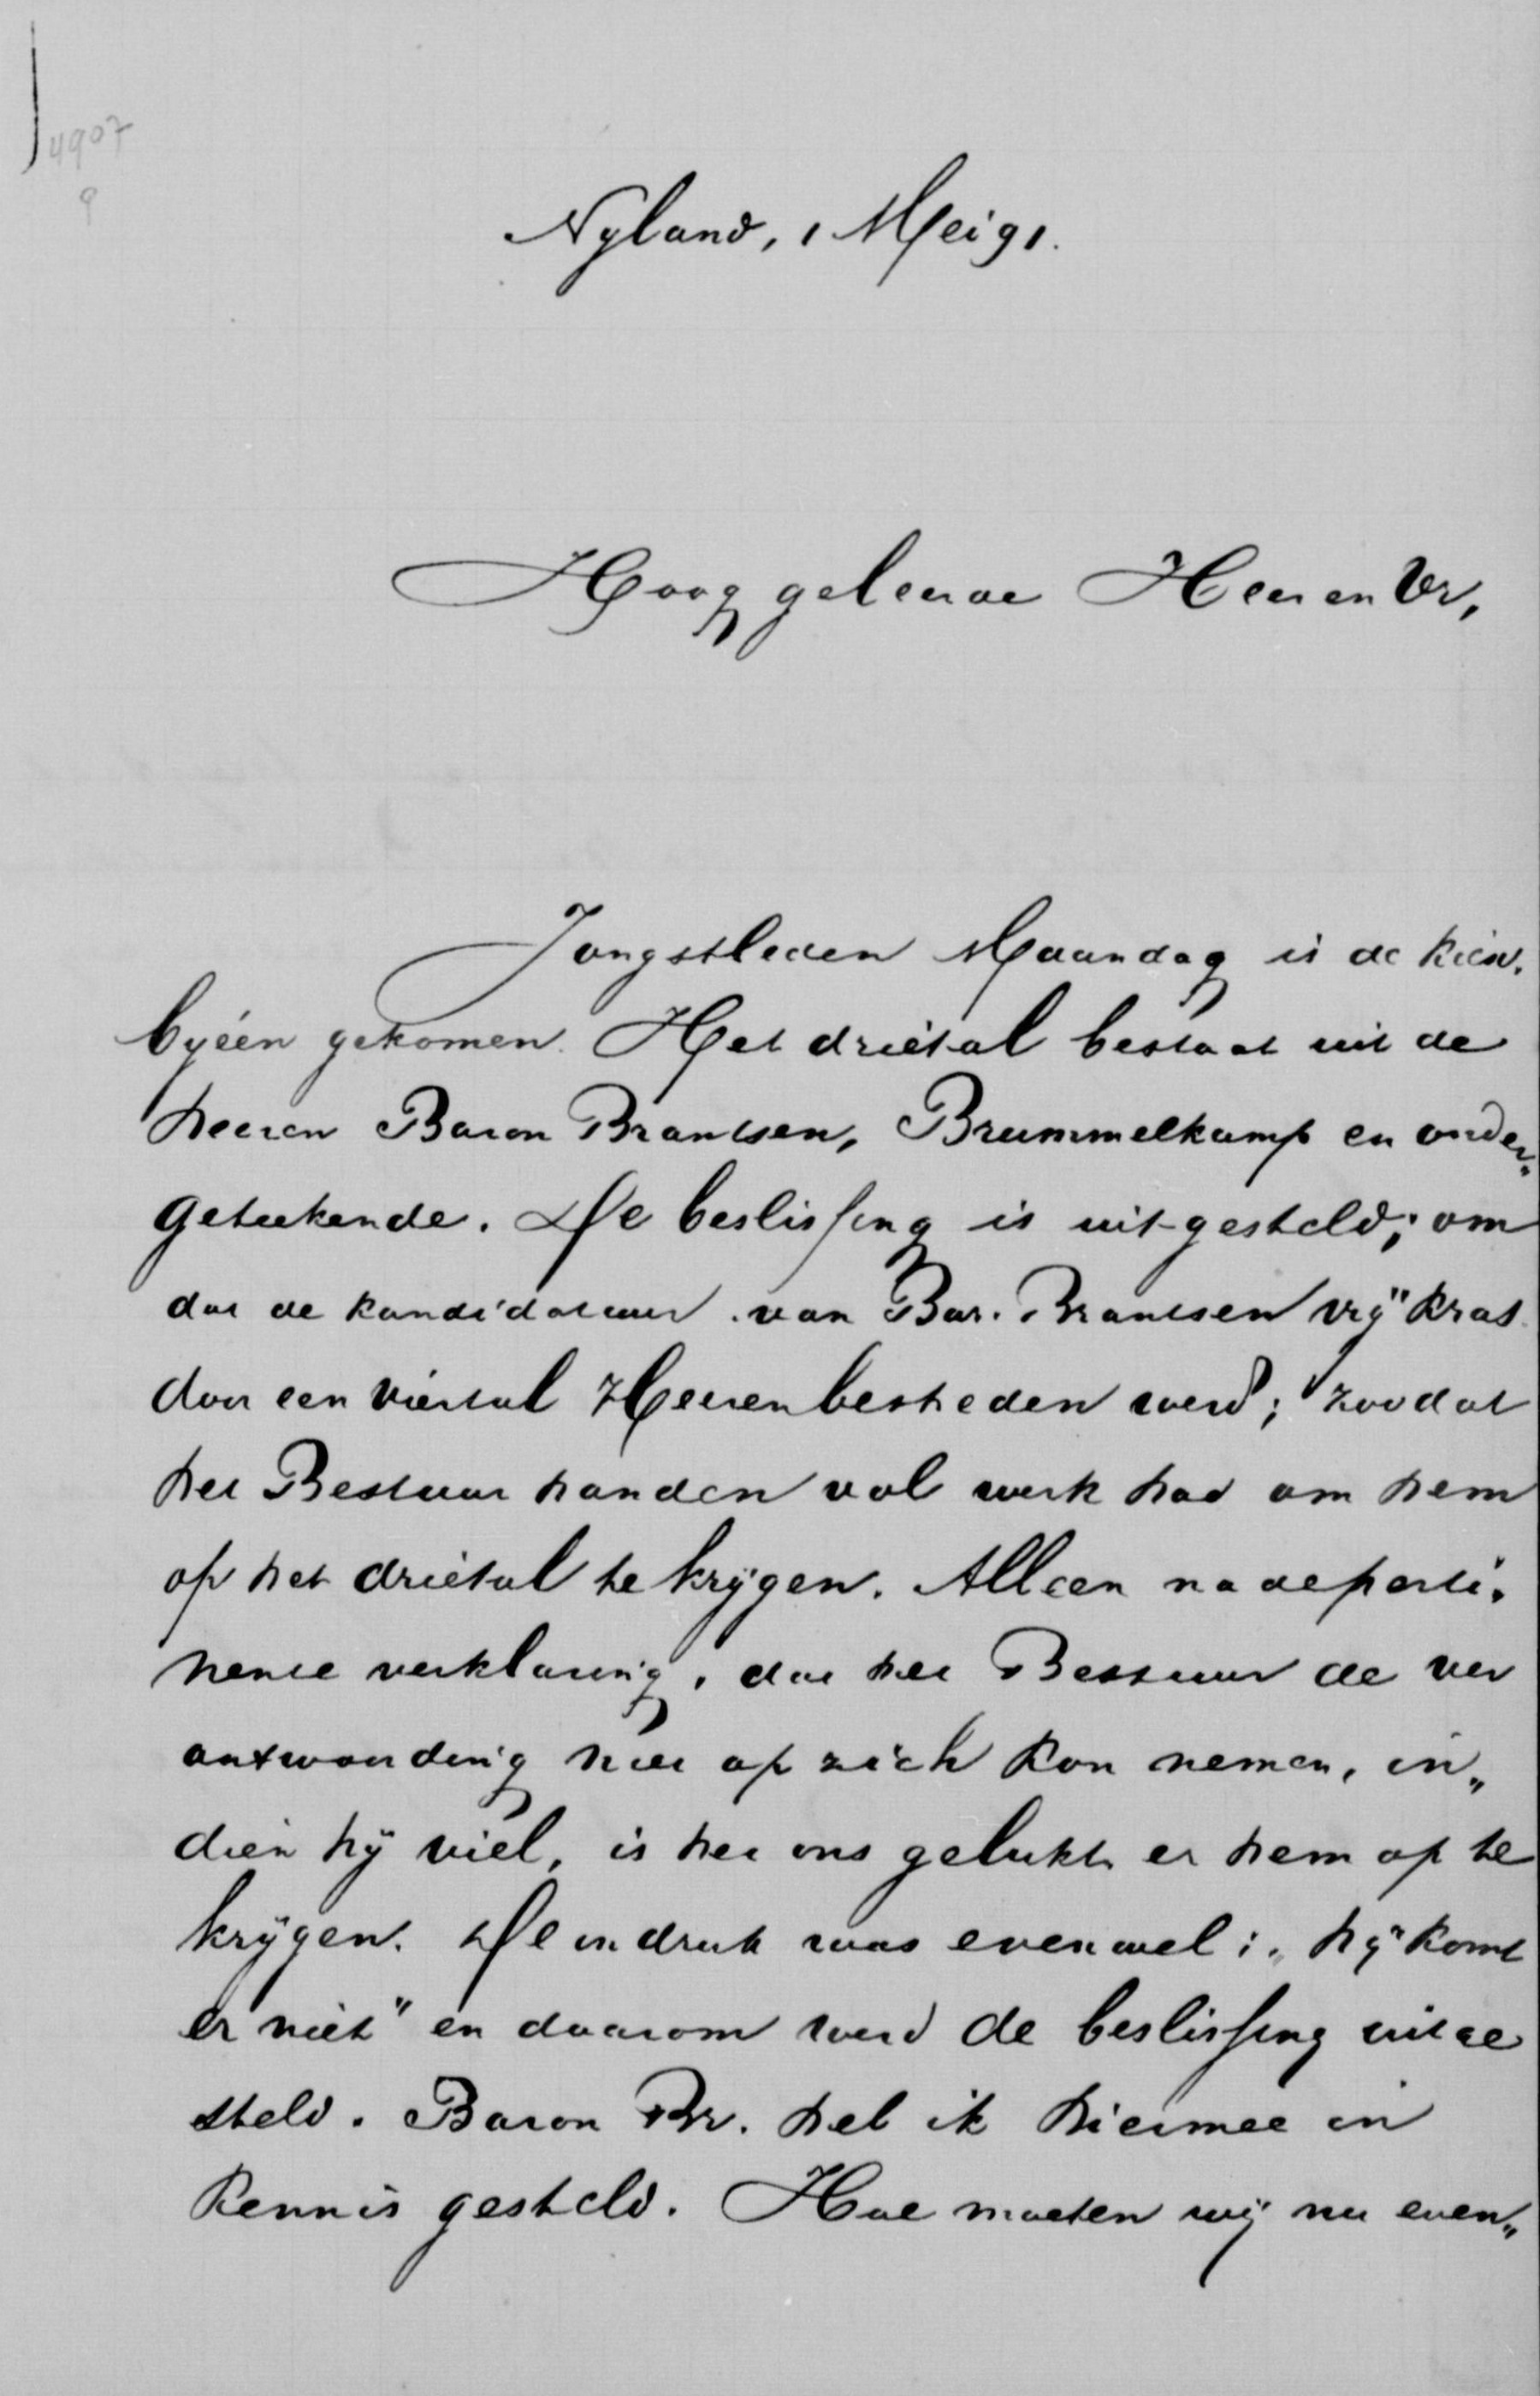 4907
9
Nyland, 1 Mei 91.
Hooggeleerde Heer en Vr,
Jongstleden Maandag is de kiesv.
byéén gekomen. Het drietal bestaat uit de
heeren Baron Brantsen, Brummelkamp en onder„
geteekende. De beslissing is uitgesteld; om
dat de kandidatuur van Bar. Brantsen vrij kras
door een viertal Heeren bestreden werd; zoodat
het Bestuur handen vol werk had om hem
op het drietal te krijgen. Alleen na de perti„
nente verklaring, dat het Bestuur de ver
antwoording niet op zich kon nemen, in„
dien hij viel, is het ons gelukt er hem op te
krijgen. De indruk was evenwel: „hij komt
er niet" en daarom werd de beslissing uitge
steld. Baron Br. heb ik hiermee in
kennis gesteld. Hoe moeten wij nu even„